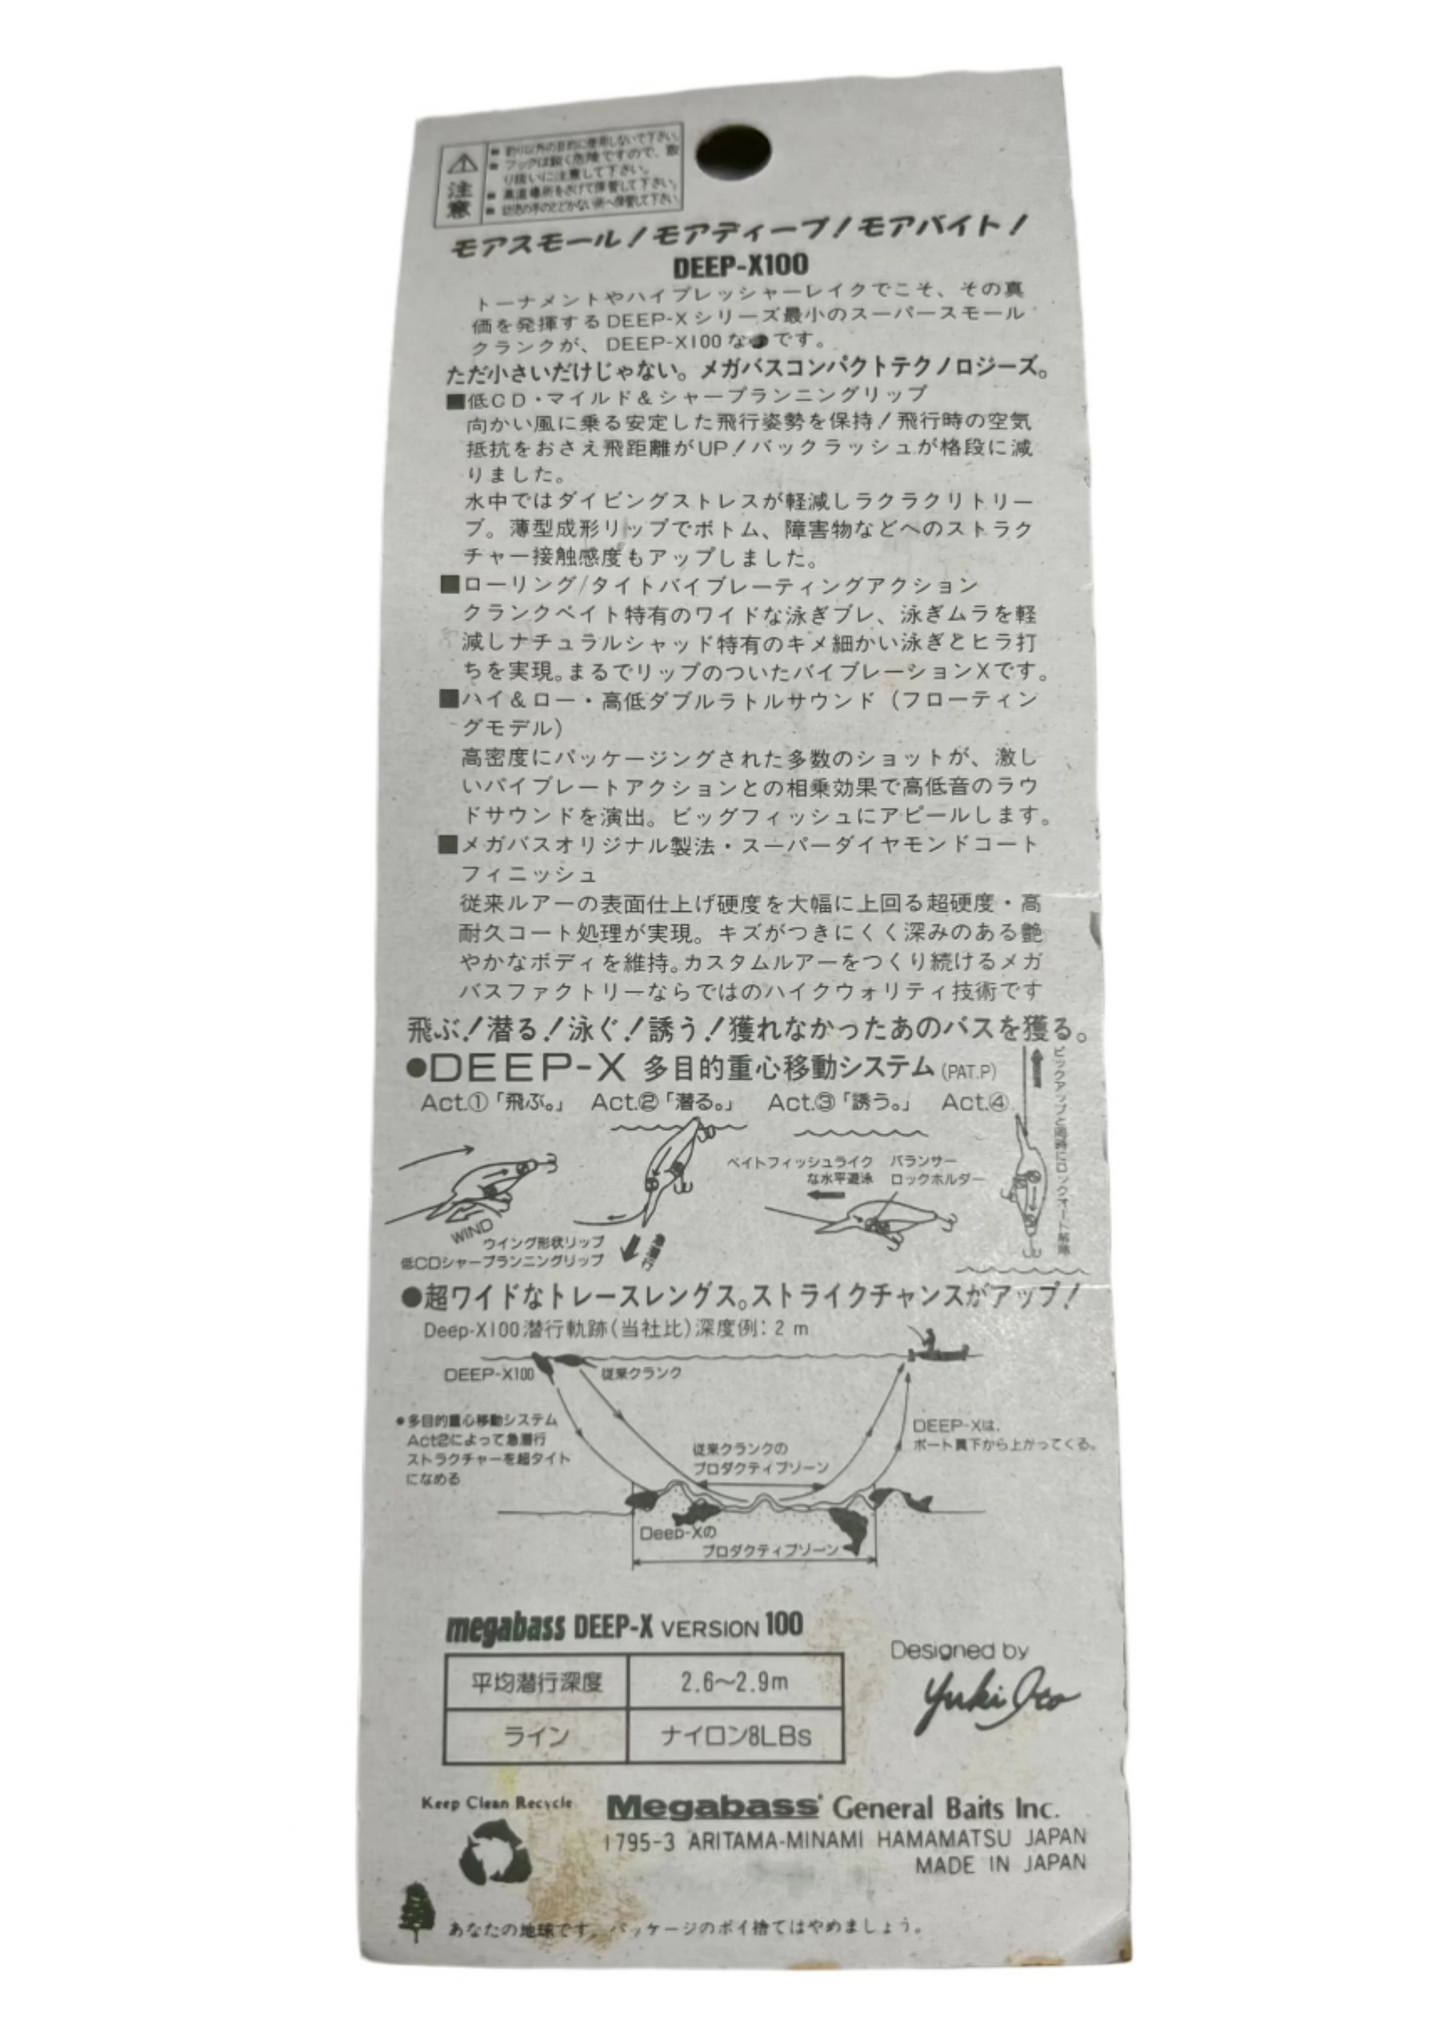 注意
■ 釣り以外の目的に使用しないで下さい。
■ フックは鋭く危険ですので、取
り扱いに注意して下さい。
■ 高温場所をさけて保管して下さい。
■ 幼児の手のとどかない所へ保管して下さい。
モアスモール!モアディープ!モアバイト!
DEEP-X100
トーナメントやハイプレッシャーレイクでこそ、その真
価を発揮するDEEP-Xシリーズ最小のスーパースモール
クランクが、DEEP-X100な です。
ただ小さいだけじゃない。メガバスコンパクトテクノロジーズ。
■低CD・マイルド&シャープランニングリップ
向かい風に乗る安定した飛行姿勢を保持!飛行時の空気
抵抗をおさえ飛距離がUP!バックラッシュが格段に減
りました。
水中ではダイビングストレスが軽減しラクラクリトリー
ブ。薄型成形リップでボトム、障害物などへのストラク
チャー接触感度もアップしました。
■ローリング/タイトバイブレーティングアクション
クランクベイト特有のワイドな泳ぎブレ、泳ぎムラを軽
減しナチュラルシャッド特有のキメ細かい泳ぎとヒラ打
ちを実現。まるでリップのついたバイブレーションXです。
■ハイ&ロー・高低ダブルラトルサウンド(フローティン
グモデル)
高密度にパッケージングされた多数のショットが、激し
いバイブレートアクションとの相乗効果で高低音のラウ
ドサウンドを演出。ビッグフィッシュにアピールします。
■メガバスオリジナル製法・スーパーダイヤモンドコート
フィニッシュ
従来ルアーの表面仕上げ硬度を大幅に上回る超硬度・高
耐久コート処理が実現。キズがつきにくく深みのある艶
やかなボディを維持。カスタムルアーをつくり続けるメガ
バスファクトリーならではのハイクウォリティ技術です
飛ぶ!潜る!泳ぐ!誘う!獲れなかったあのバスを獲る。
●DEEP-X 多目的重心移動システム(PAT.P)
Act.①「飛ぶ。」 Act.②「潜る。」 Act.③「誘う。」 Act.④
ピックアップと同時にロックオート解除
ベイトフィッシュライク
な水平遊泳
バランサー
ロックホルダー
WIND
ウイング形状リップ
低CDシャープランニングリップ
急潜行
●超ワイドなトレースレングス。ストライクチャンスがアップ!
Deep-X100潜行軌跡(当社比)深度例:2m
DEEP-X100
従来クランク
●多目的重心移動システム
Act②によって急潜行
ストラクチャーを超タイト
になめる
従来クランクの
プロダクティブゾーン
DEEP-Xは、
ボート真下から上がってくる。
Deep-Xの
プロダクティブゾーン
megabass DEEP-X VERSION 100
平均潜行深度 2.6～2.9m
ライン ナイロン8LBs
Designed by
Yuki Ito
Keep Clean Recycle
Megabass General Baits Inc.
1795-3 ARITAMA-MINAMI HAMAMATSU JAPAN
MADE IN JAPAN
あなたの地球です。パッケージのポイ捨てはやめましょう。